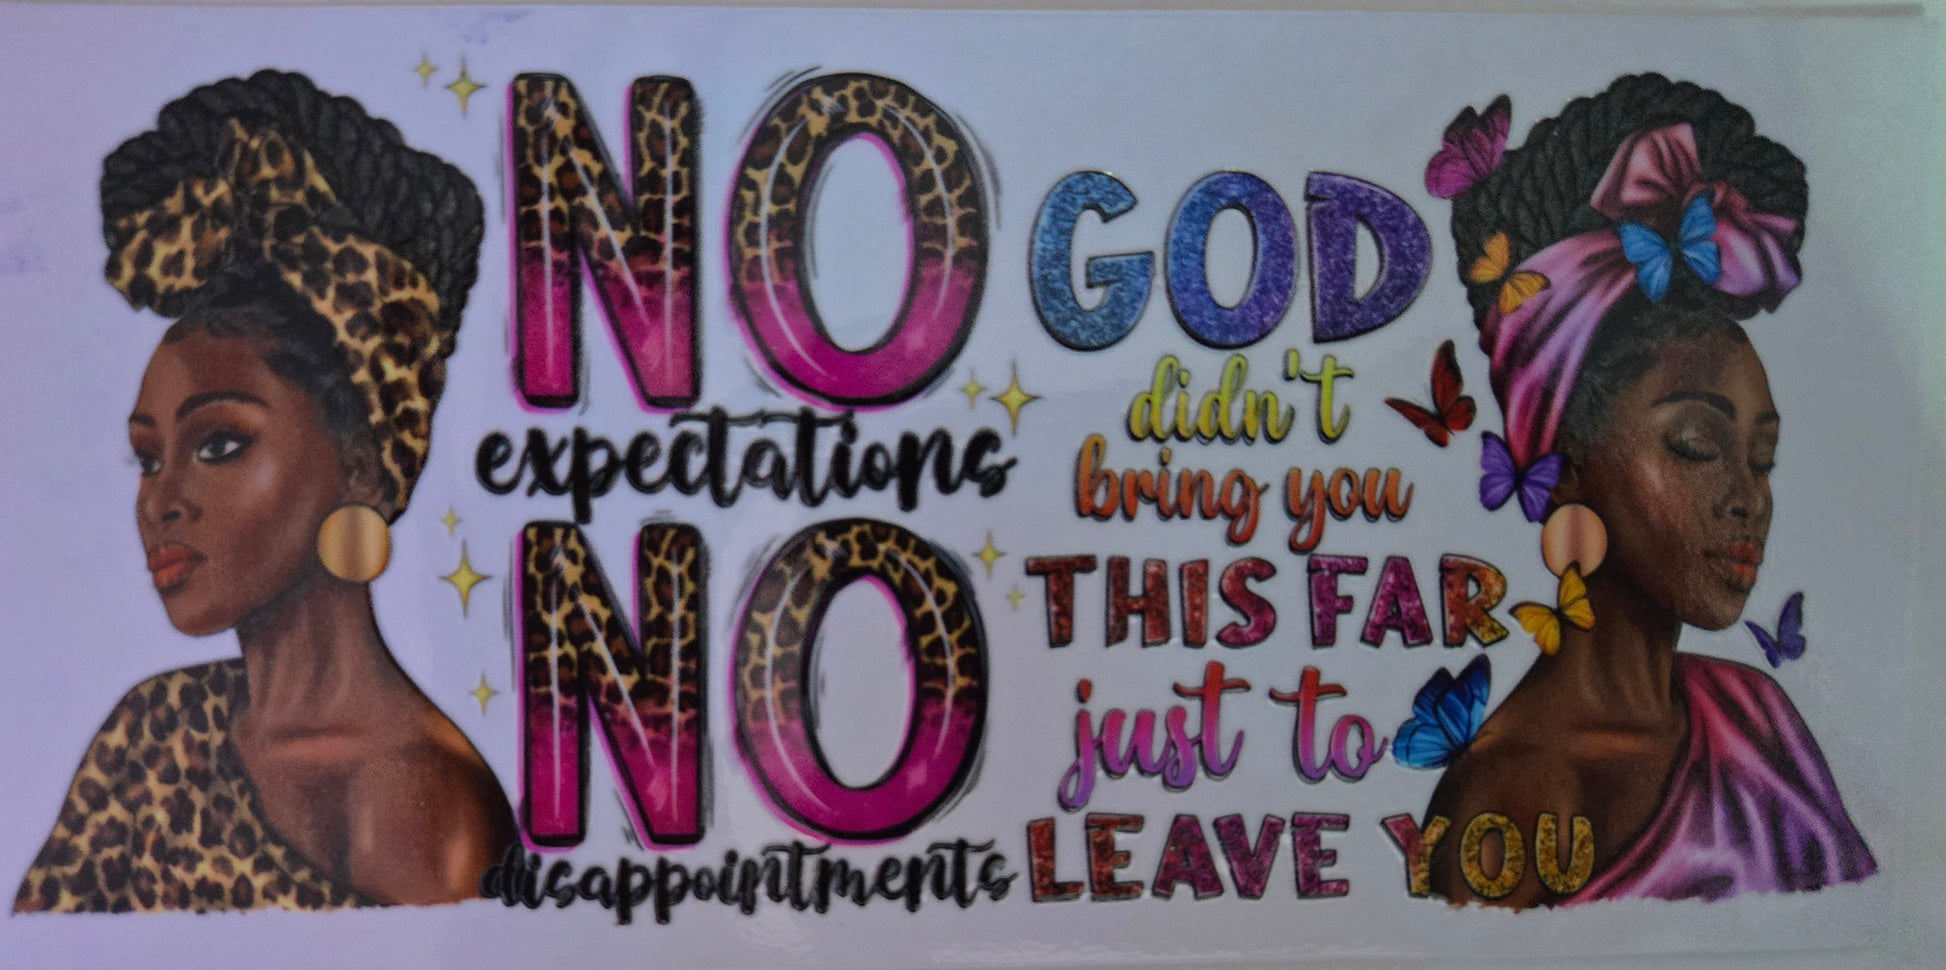 NO
expectations
NO
disappointments
GOD
didn't
bring you
THIS FAR
just to
LEAVE YOU